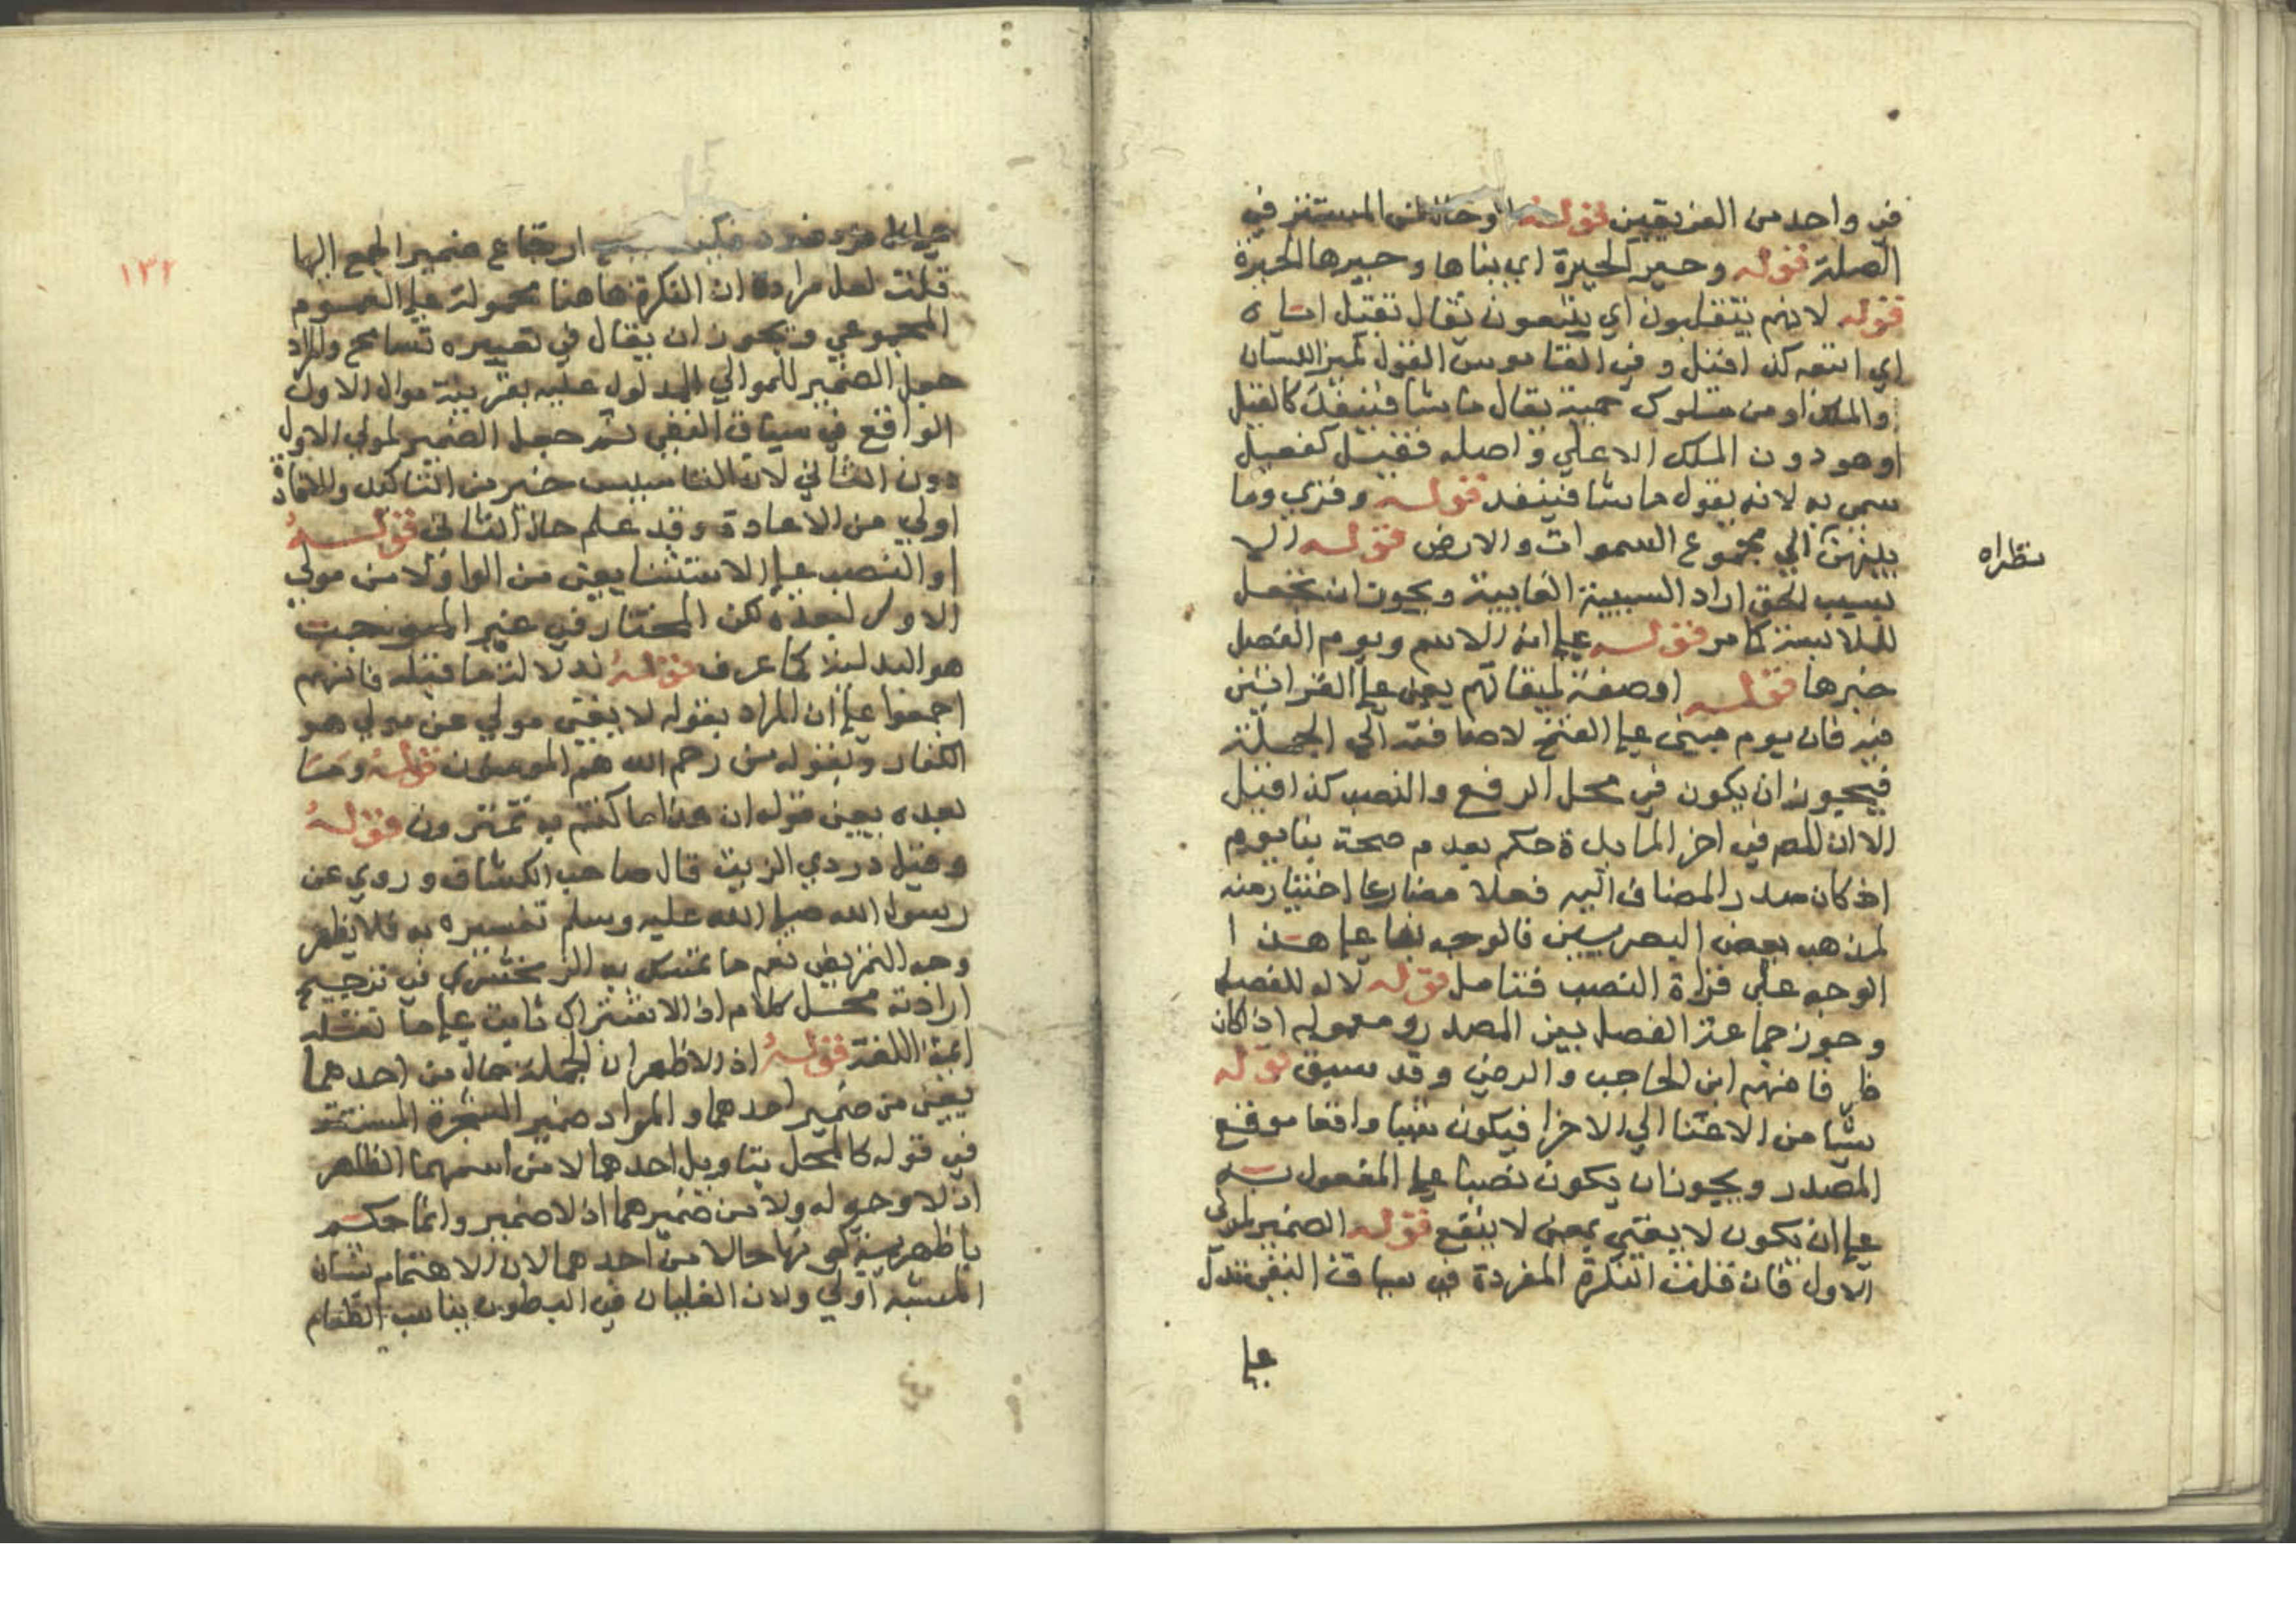 في واحد من الفريقين قوله او حال من المستتر في
الصلة قوله وحير الحيرة اي بناها وحيرها الحيرة
قوله لانهم يتقيلون اي يتبعون يقال تقيل اباه
اي اتبعه كذا قيل وفي القاموس القول كمبر اللسان
والملك او من ملوك حمير يقال ما يشا فينفذ كالقيل
او هو دون الملك الاعلي واصله فقيل كفعيل
سمي به لانه يقول ما شا فينفذ قوله وقري وما
بينهن الي مجموع السموات والارض قوله الا
بسبب الحق اراد السببية الغايية ويجوز ان تجعل
للملابسة كما مر قوله علي انه الاسم ويوم الفصل
خبرها قوله او صفة لميقاتهم يعني علي القرائتين
فيه فان يوم مبني علي الفتح لاضافته الي الجملة
فيجوز ان يكون في محل الرفع والنصب كذا قيل
الا ان المص في اخر المايدة حكم بعدم صحة بنا يوم
اذ كان صدر المضاف اليه فعلا مضارعا اختيار منه
لمذهب بعض البصريين فالوجه بها علي هذا
الوجه علي قراة النصب فتامل قوله لا له للفصل
وجوز جماعة الفصل بين المصدر ومعموله اذا كان
ظرفا منهم ابن الحاجب والرضي وقد سبق قوله
شيا من الاغنا الي الاخرا فيكون شيا واقعا موقع
المصدر ويجوز ان يكون نصبا علي المفعول به
علي ان يكون لا يغني بمعني لا ينفع قوله الضمير لمولي
الاول فان قلت النكرة المفردة في سياق النفي تدل
علي
نظراه
١٣٢
علي كل فرد فرد ارتجاع ضمير الجمع اليها
قلت لعل مراده ان النكرة هاهنا محمولة علي العموم
المجموعي ويجوز ان يقال في تعبيره تسامح والمراد
جعل الضمير للموالي المدلول عليه بقرينة موال الاول
الواقع في سياق النفي ثم جعل الضمير لمولي الاول
دون الثاني لان التاسيس خير من التاكيد والافادة
اولي من الاعادة وقد علم حال الثاني قوله
او النصب علي الاستثنا يعني من الواو لا من مولي
الاول لبعده لكن المختار في غير الموجب
هو البدلية كما عرف قوله لدلالة ما قبله فانهم
اجمعوا علي ان المراد بقوله لا يغني مولي عن مولي هو
الكفار وبقوله من رحم الله هم المومنون قوله وما
بعده يعني قوله ان هذا ما كنتم به تمترون قوله
وقيل دردي الزيت قال صاحب الكشاف وروي عن
رسول الله صلي الله عليه وسلم تفسيره به فلا يظهر
وجه التمريض نعم ما تمسك به الزمخشري في ترجيح
ارادته محل كلام اذ الاشتراك ثابت علي ما نقله
ايمة اللغة قوله اذ الاظهر ان الجملة حال من احدهما
يعني من ضمير احدهما والمراد ضمير الشجرة المستتر
في قوله كالمهل بتاويل احدهما لا من اسمهما الظاهر
اذ لا وجه له ولا من ضميرهما اذ لا ضمير وانما حكم
باظهرية كونها حالا من احدهما لان الاهتمام بشان
المشبه اولي ولان الغليان في البطون يناسب الطعام